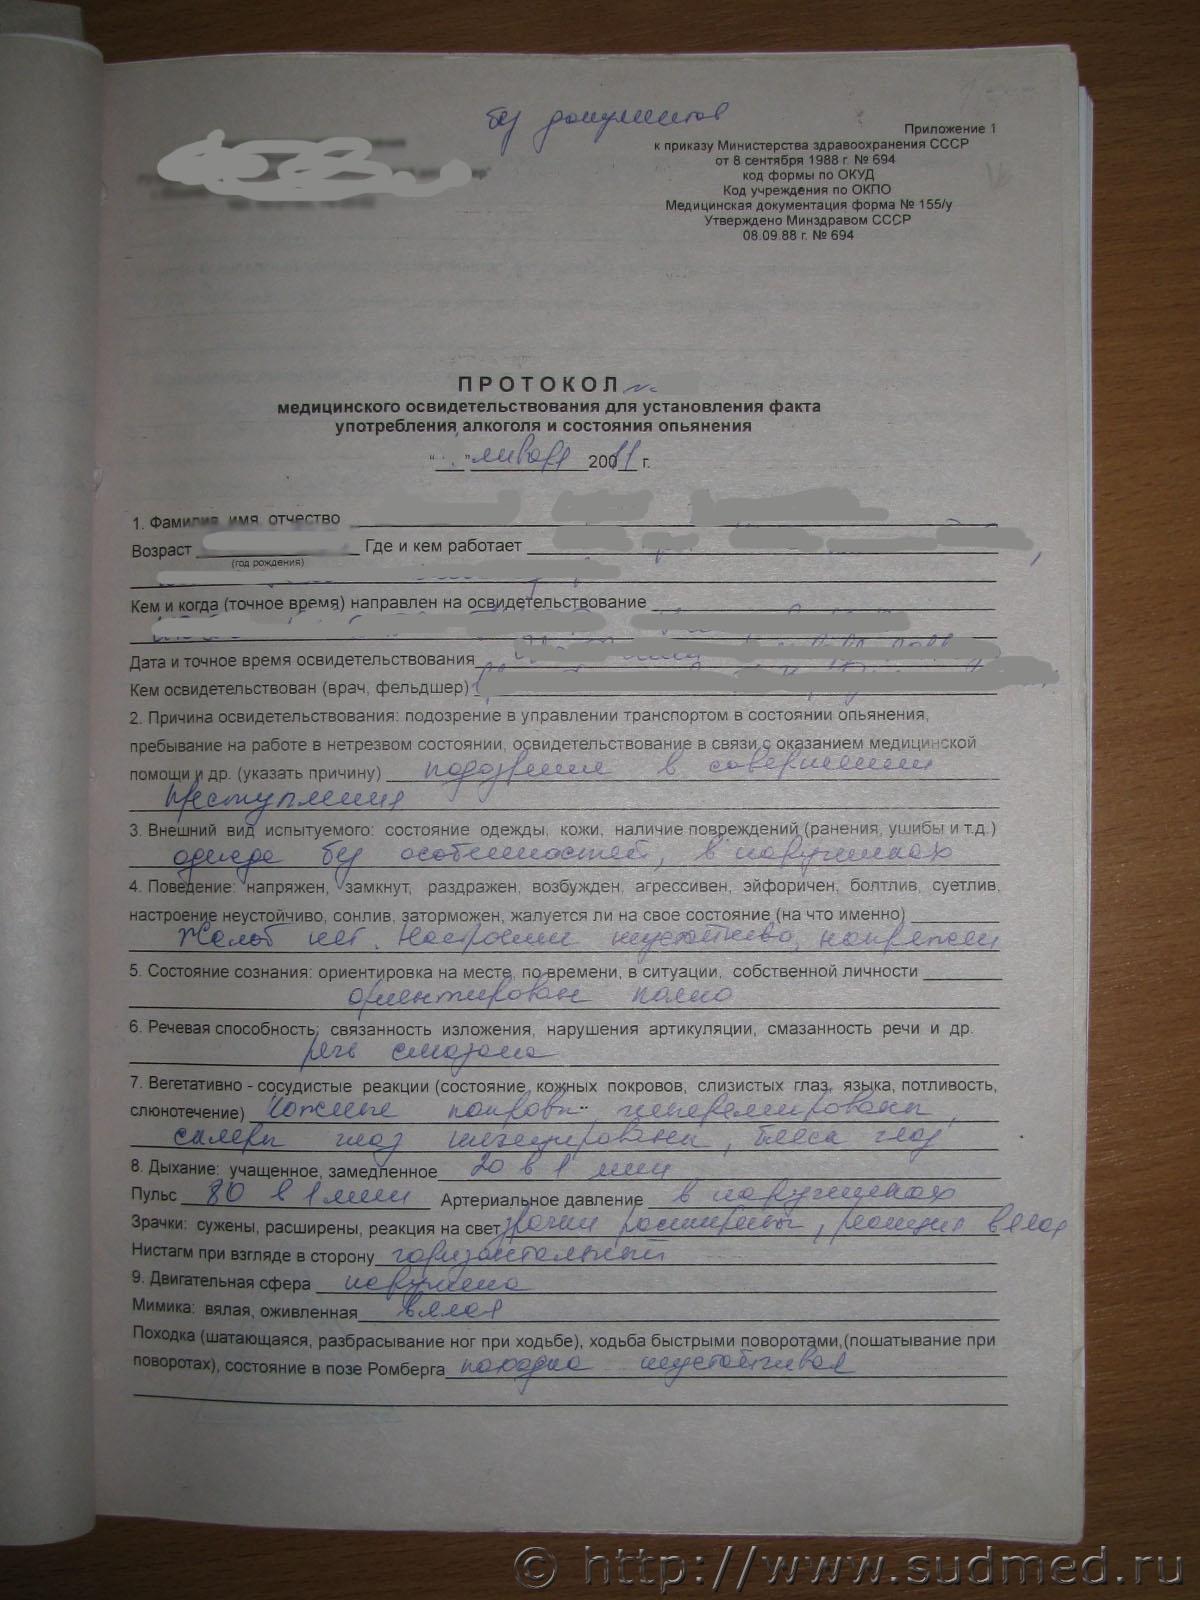 без документов
Приложение 1
к приказу Министерства здравоохранения СССР
от 8 сентября 1988 г. № 694
код формы по ОКУД
Код учреждения по ОКПО
Медицинская документация форма № 155/у
Утверждено Минздравом СССР
08.09.88 г. № 694
ПРОТОКОЛ №
медицинского освидетельствования для установления факта
употребления алкоголя и состояния опьянения
" " января 2011 г.
1. Фамилия, имя, отчество
Возраст Где и кем работает
(год рождения)
Кем и когда (точное время) направлен на освидетельствование
Дата и точное время освидетельствования
Кем освидетельствован (врач, фельдшер)
2. Причина освидетельствования: подозрение в управлении транспортом в состоянии опьянения,
пребывание на работе в нетрезвом состоянии, освидетельствование в связи с оказанием медицинской
помощи и др. (указать причину) подозрение в совершении
преступления
3. Внешний вид испытуемого: состояние одежды, кожи, наличие повреждений (ранения, ушибы и т.д.)
одежда без особенностей, в наручниках
4. Поведение: напряжен, замкнут, раздражен, возбужден, агрессивен, эйфоричен, болтлив, суетлив,
настроение неустойчиво, сонлив, заторможен, жалуется ли на свое состояние (на что именно)
Жалоб нет. Настроение неустойчиво, напряжен
5. Состояние сознания: ориентировка на месте, по времени, в ситуации, собственной личности
ориентирован полно
6. Речевая способность: связанность изложения, нарушения артикуляции, смазанность речи и др.
речь смазана
7. Вегетативно - сосудистые реакции (состояние кожных покровов, слизистых глаз, языка, потливость,
слюнотечение) кожные покровы гиперемированы,
склеры глаз инъецированы, блеск глаз
8. Дыхание: учащенное, замедленное 20 в 1 мин
Пульс 80 в 1 мин Артериальное давление в наручниках
Зрачки: сужены, расширены, реакция на свет зрачки расширены, реакция вялая
Нистагм при взгляде в сторону горизонтальный
9. Двигательная сфера нарушена
Мимика: вялая, оживленная вялая
Походка (шатающаяся, разбрасывание ног при ходьбе), ходьба быстрыми поворотами,(пошатывание при
поворотах), состояние в позе Ромберга походка неустойчивая
© http://www.sudmed.ru